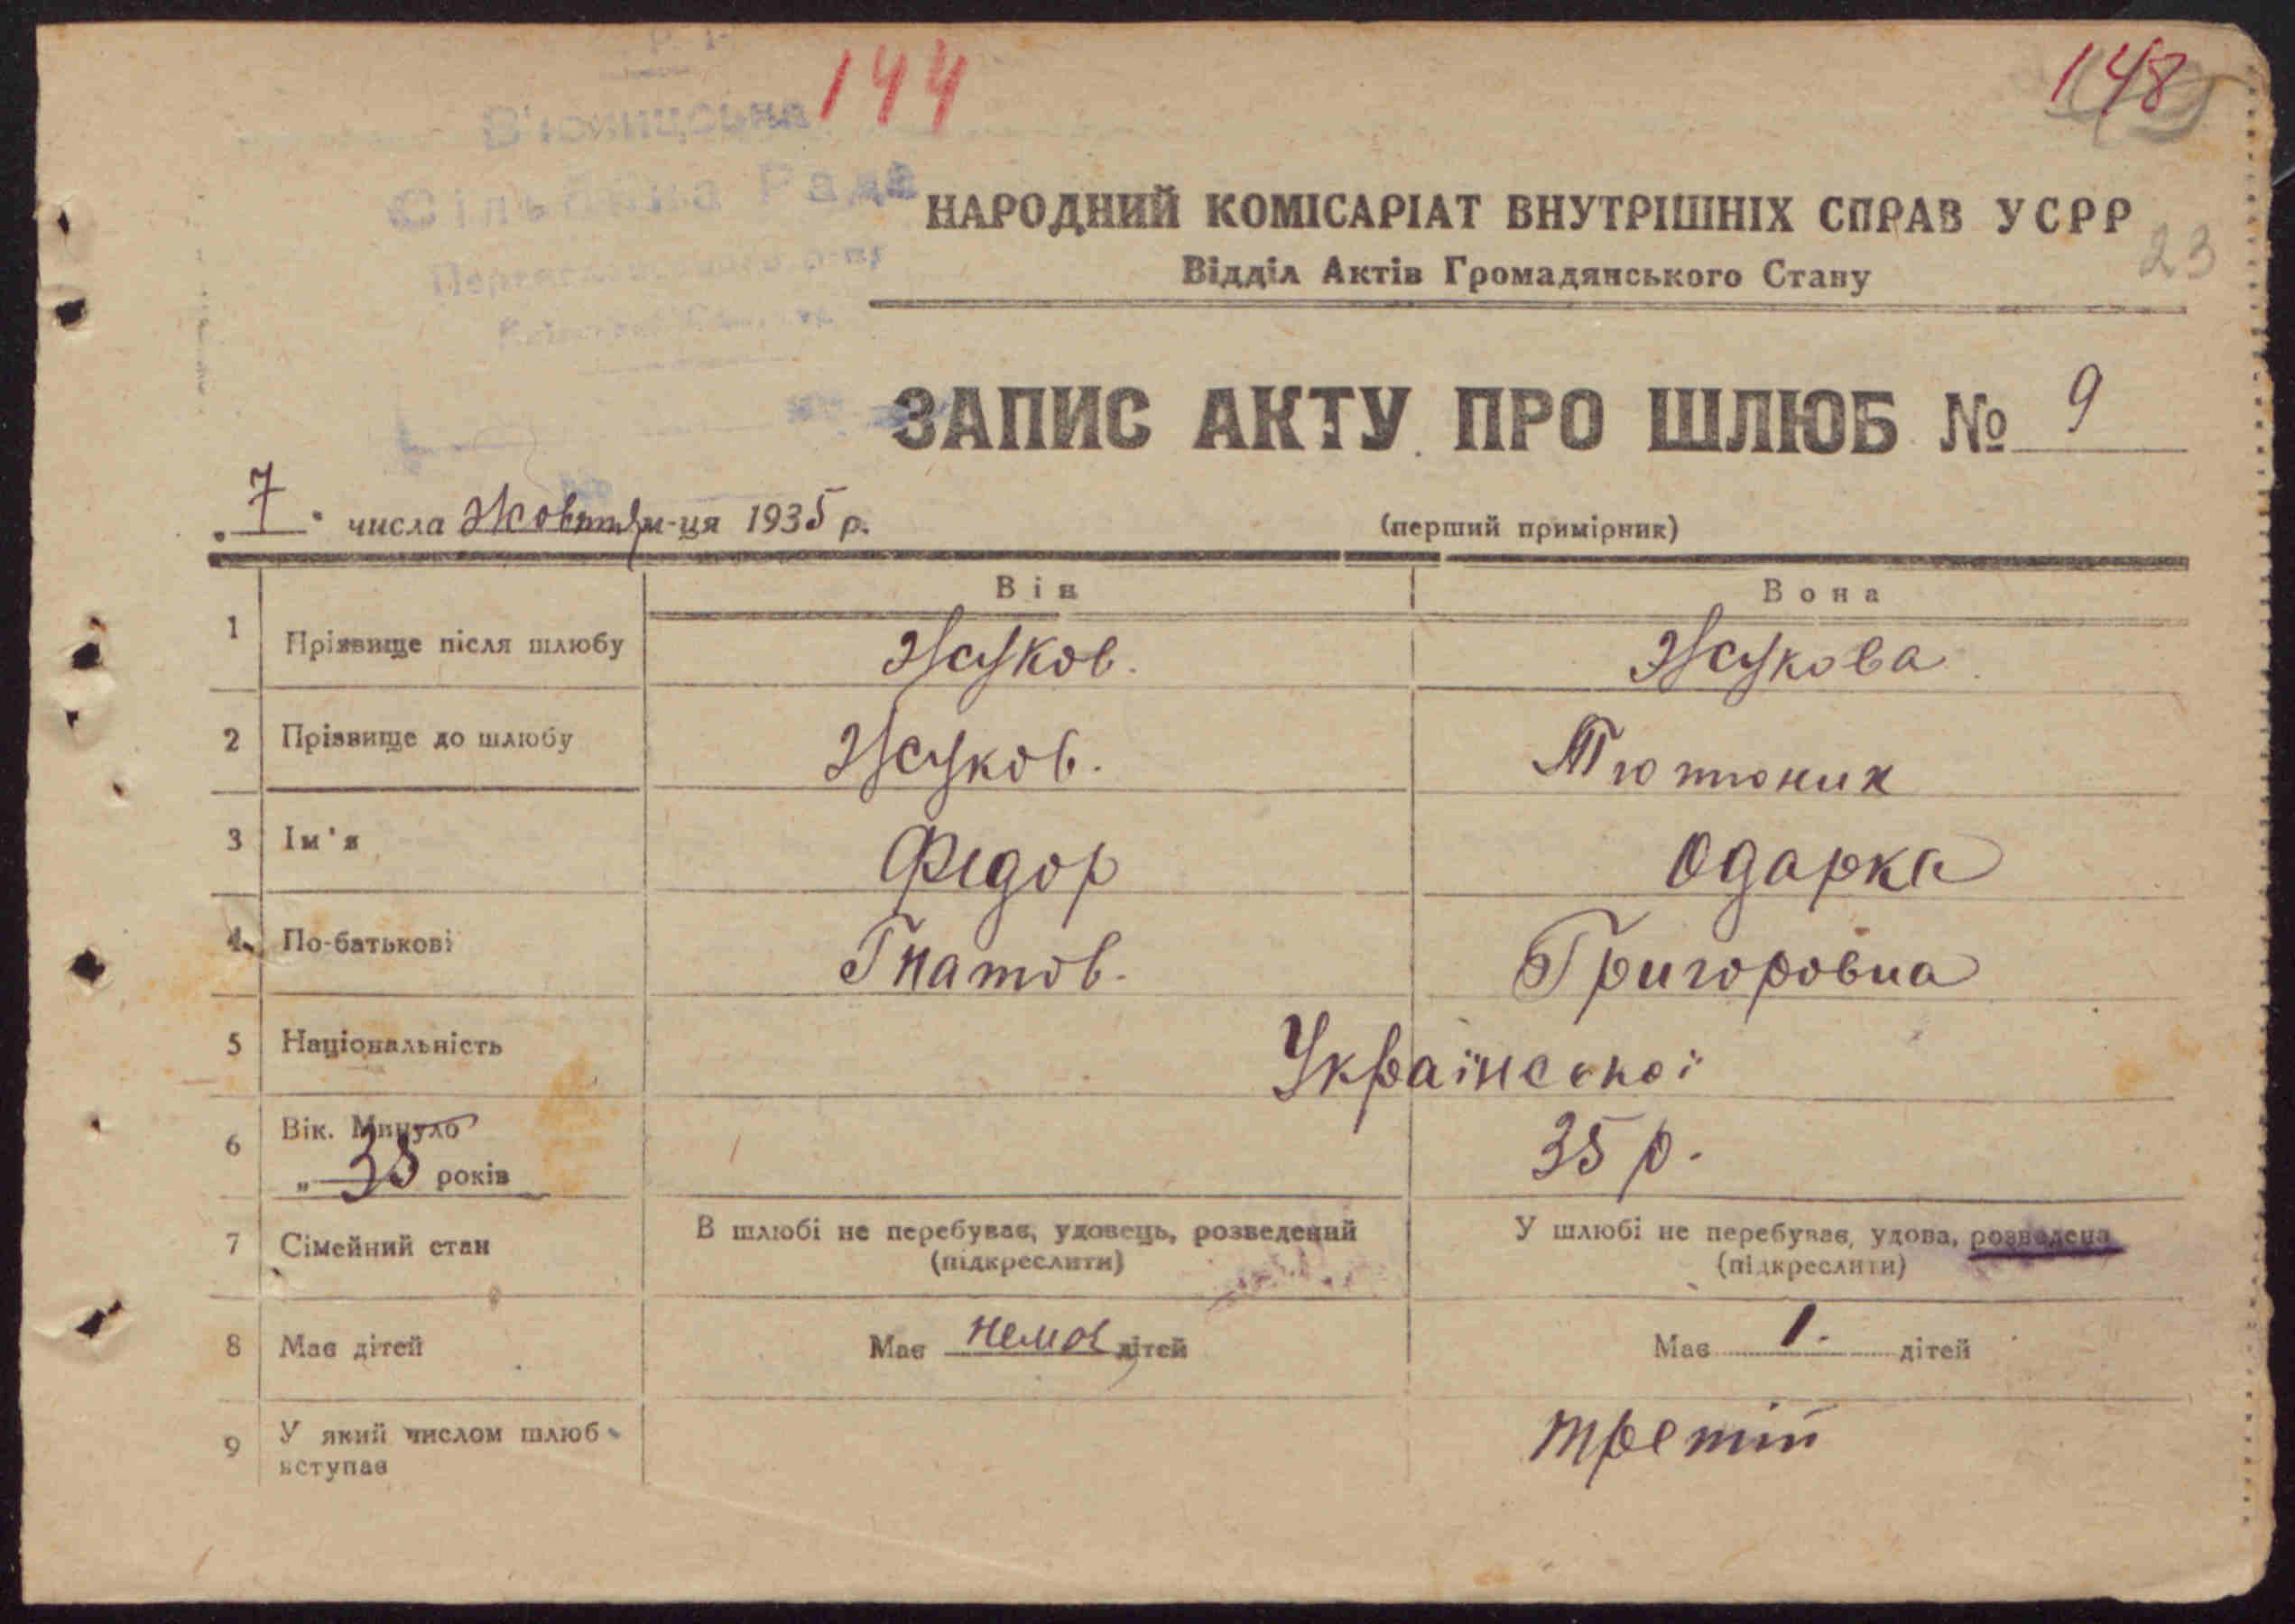 144
148
В'юнищська
Сільська Рада
НАРОДНИЙ КОМІСАРІАТ ВНУТРІШНІХ СПРАВ УСРР
23
Відділ Актів Громадянського Стану
ЗАПИС АКТУ ПРО ШЛЮБ № 9
"7" числа Жовтня м-ця 1935 р.
(перший примірник)
Він Вона
1 Прізвище після шлюбу Жуков. Жукова
2 Прізвище до шлюбу Жуков. Тютюник
3 Ім'я Федор Одарка
4 По-батькові Гнатов. Григоровна
5 Національність Української
6 Вік. Минуло
„ 38 років 35 р.
7 Сімейний стан В шлюбі не перебував, удовець, розведений У шлюбі не перебував, удова, розведена
(підкреслити) (підкреслити)
8 Має дітей Має нема дітей Має 1. дітей
9 У який числом шлюб третій
вступає